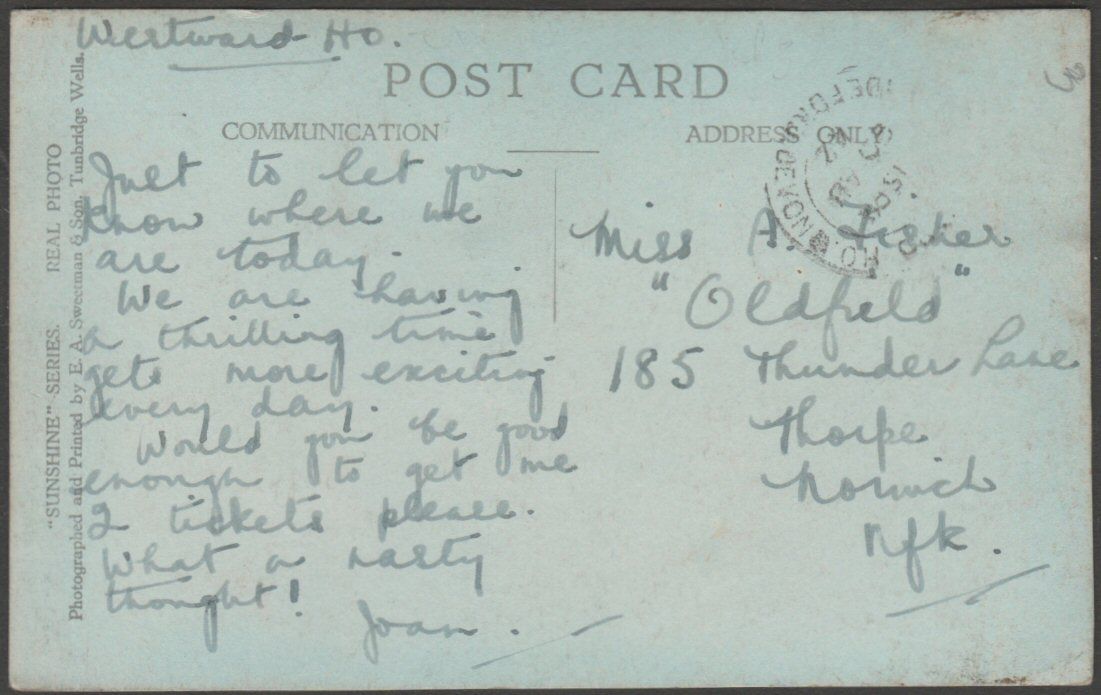 Westward Ho.
POST CARD
COMMUNICATION
ADDRESS ONLY
"SUNSHINE" SERIES. REAL PHOTO
Photographed and Printed by E. A. Sweetman & Son, Tunbridge Wells.
Just to let you
know where we
are today.
We are having
a thrilling time
gets more exciting
every day.
Would you be good
enough to get me
2 tickets please.
What a nasty
thought!
Joan.
Miss A. Fisher
"Oldfield"
185 Thunder Lane
Thorpe
Norwich
Nfk.
HO. BIDEFORD DEVON
3